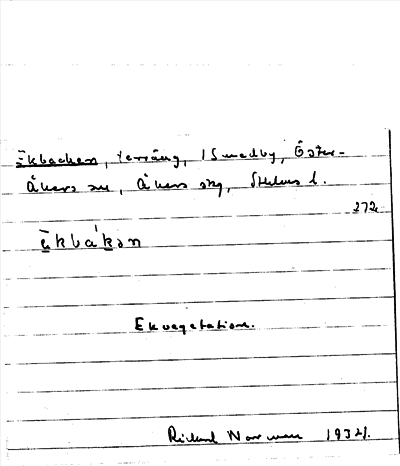 Ekbacken, terräng, Smedby, Öster-
Åkers sn, Åkers skg, Sthlms l.
272
ēkbàkən
Ekvegetation.
Rickard 1932.